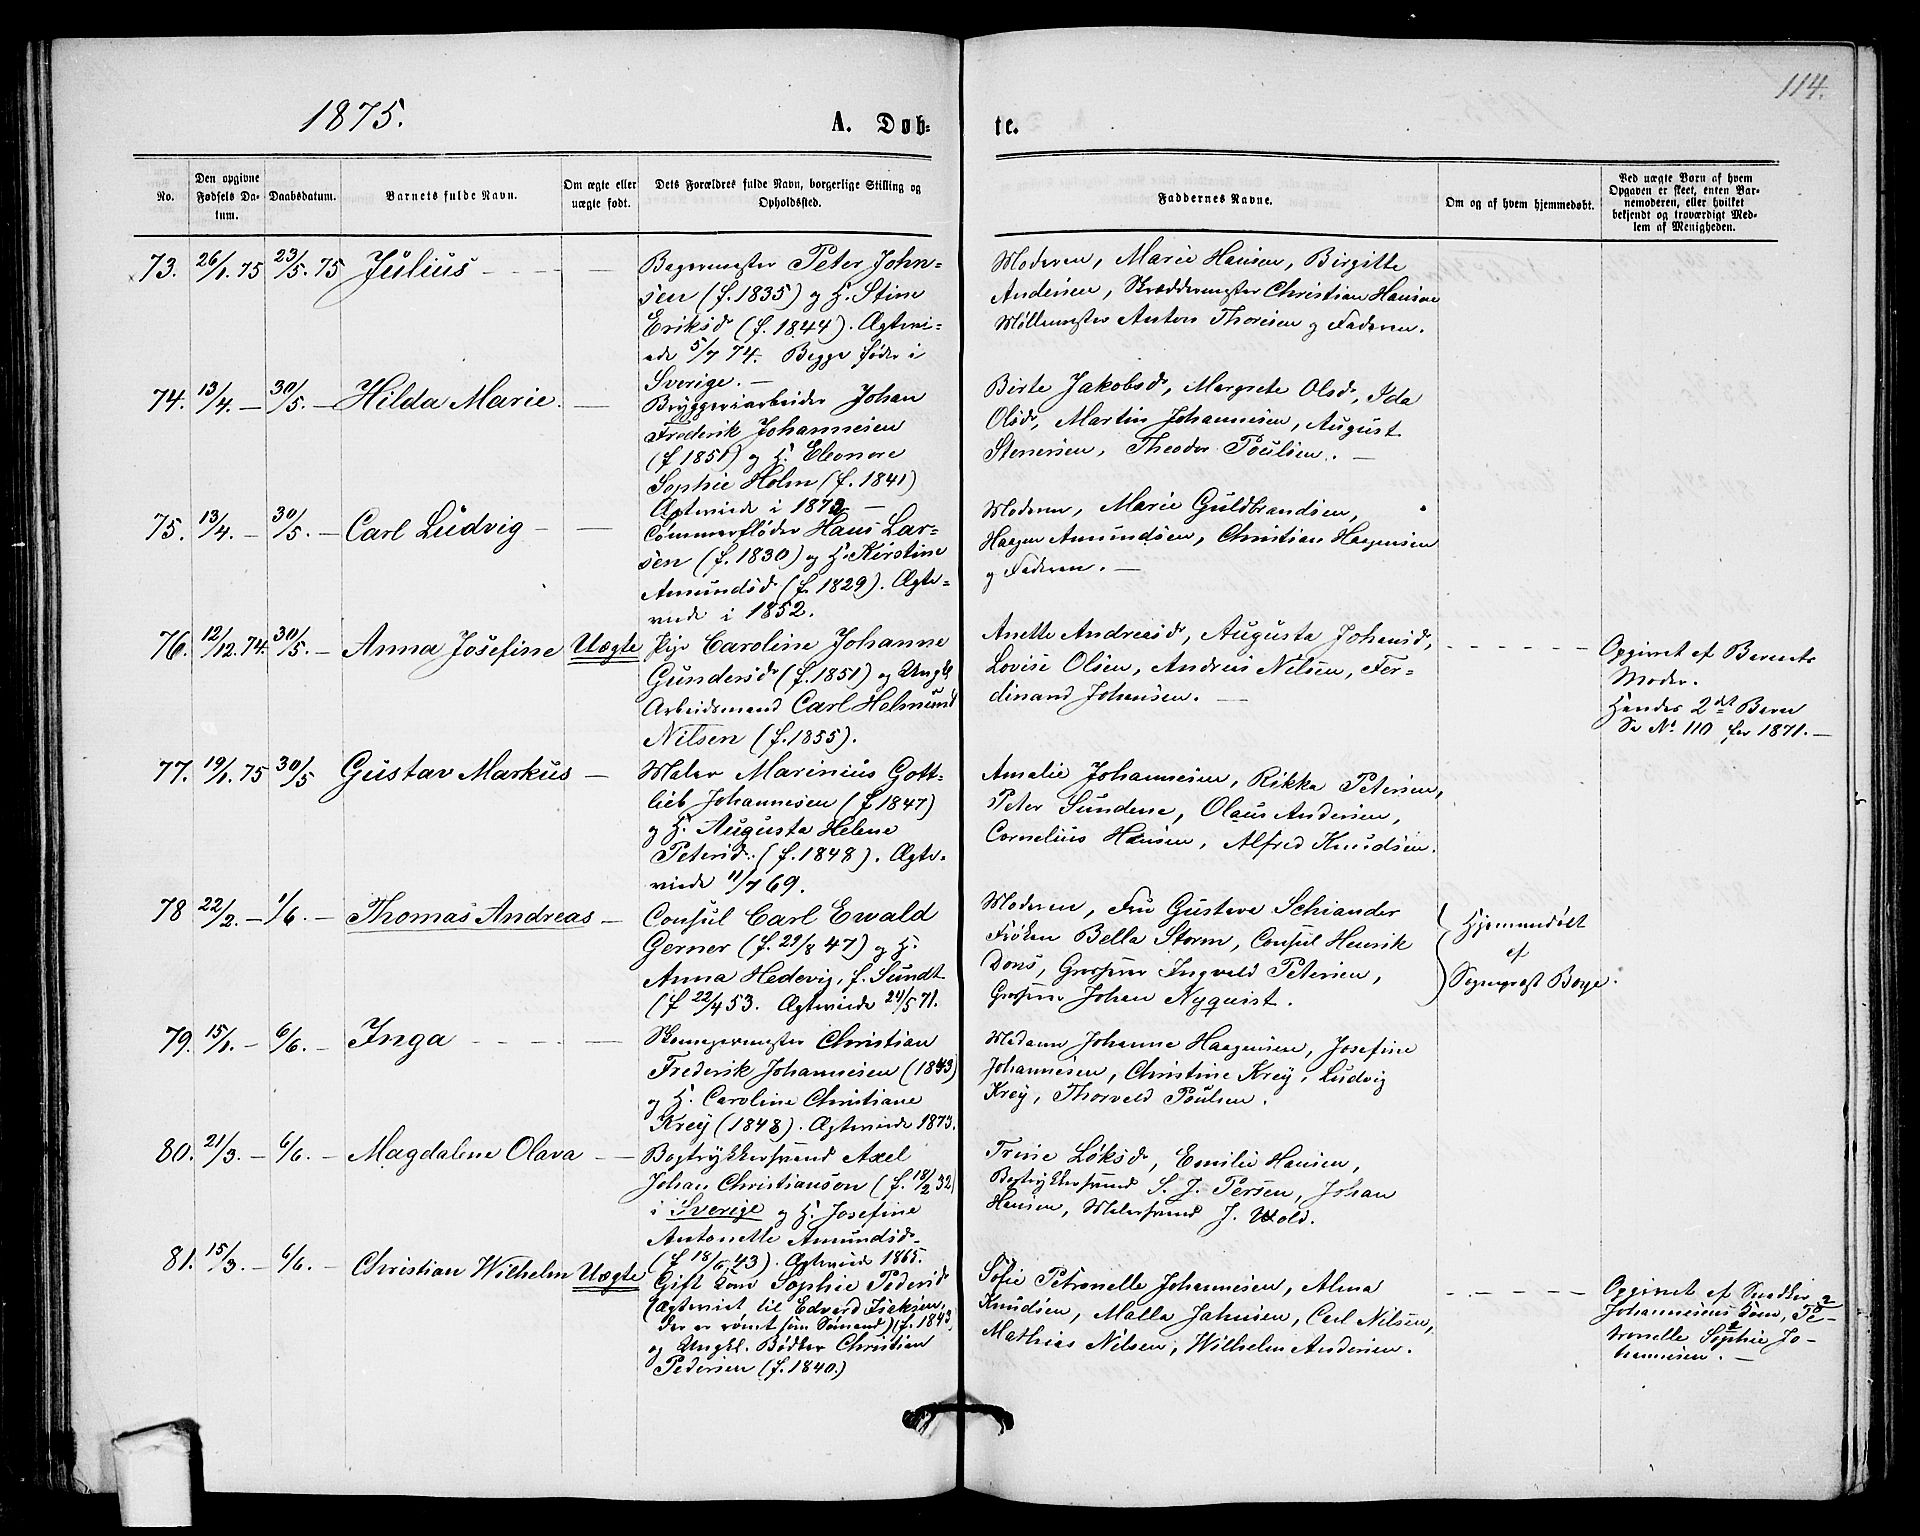 114.
1875.
A. Døb-
te.
No.
Den opgivne
Fødsels Da-
tum.
Daabsdatum.
Barnets fulde Navn.
Om ægte eller
uægte født.
Dets Forældres fulde Navn, borgerlige Stilling og
Opholdssted.
Faddernes Navne.
Om og af hvem hjemmedøbt.
Ved uægte Born af hvem
Opgaven er skeet, enten Bar-
nemoderen, eller hvilket
bekjendt og troværdigt Med-
lem af Menigheden.
73. 26/1. 75 23/5. 75 Julius
Bagermester Peter John-
sen (f. 1835) og H. Stine
Eriksd (f. 1844). Ægtevi-
ede 5/7 74. Begge føder i
Sverige. —
Moderen, Marie Hansen, Birgitte
Andersen, Skræddermester Christian Hansen
Møllemester Anton Thoresen og Faderen.
74. 13/4. — 30/5. — Hilda Marie. —
Bryggeriarbeider Johan
Frederik Johannesen
(f 1851) og H. Eleonore
Sophie Holm (f. 1841)
Ægteviede i 1873 —
Birte Jakobsd, Margrete Olsd, Ida
Olsd, Martin Johannesen, August
Stenersen, Theodor Poulsen. —
75. 13/4. — 30/5. — Carl Ludvig — —
Tømmerfløder Hans Lar-
sen (f. 1830) og H. Kirstine
Amundsd (f. 1829). Ægte-
viede i 1852.
Moderen, Marie Guldbrandsen,
Haagen Amundsen, Christian Haagensen
og Faderen. —
76. 12/12. 74. 30/5. — Anna Josefine Uægte
Pige Caroline Johanne
Gundersd (f. 1851) og Ungk.
Arbeidsmand Carl Helmund
Nilsen (f. 1855).
Anette Andreasd, Augusta Johansd,
Lovise Olsen, Andreas Nilsen, Fer-
dinand Johansen. —
Opgivet af Barnets
Moder.
Hendes 2det Barn
Se No 110 for 1871. —
77. 19/1. 75 30/5 Gustav Markus —
Maler Marinius Gott-
lieb Johannesen (f. 1847)
og H. Augusta Helene
Petersd. (f. 1848). Ægte-
viede 11/7 69.
Amalie Johannesen, Rikka Petersen,
Peter Sundene, Olaus Andersen,
Cornelius Hansen, Alfred Knudsen.
78 22/2. — 1/6. — Thomas Andreas —
Consul Carl Ewald
Gerner (f. 29/8 47) og H.
Anna Hedevig, f. Sundt
(f 22/4 53. Ægteviede 24/5 71.
Moderen, Fru Gustava Schiander
Frøken Bella Storm, Consul Henrik
Dons, Grosserer Ingvald Petersen,
Grosserer Johan Nyquist.
Hjemmedøbt
af
Sogneprest Boye.
79. 15/1. — 6/6. — Inga —
Skomagermester Christian
Frederik Johannesen (1843)
og H. Caroline Christiane
Krey (1848). Ægteviede 1873.
Madam Johanne Haagensen, Josefine
Johannesen, Christine Krey, Ludvig
Krey, Thorvald Poulsen.
80. 21/3. — 6/6. — Magdalene Olava — —
Bogtrykkersvend Axel
Johan Christianson (f. 18/2 32)
i Sverige og H. Josefine
Antonette Amundsd.
(f 18/6 43). Ægteviede 1865.
Trine Løksd, Emilie Hansen,
Bogtrykkersvend S. J. Persen, Johan
Hansen, Malersvend J. Wold.
81. 15/3. — 6/6. — Christian Wilhelm Uægte
Gift Kone Sophie Pedersd
(Ægteviet til Edvard Isaksen,
der er rømt som Sømand) (f. 1843)
og Ungkl. Bødker Christian
Pedersen (f. 1840.)
Sofie Petronelle Johannesen, Alma
Knudsen, Malla Jahnsen, Carl Nilsen,
Mathias Nilsen, Wilhelm Andersen.
Opgivet af Snedker
Johannesens Kone, Pe-
tronelle Sophie Jo-
hannesen. —